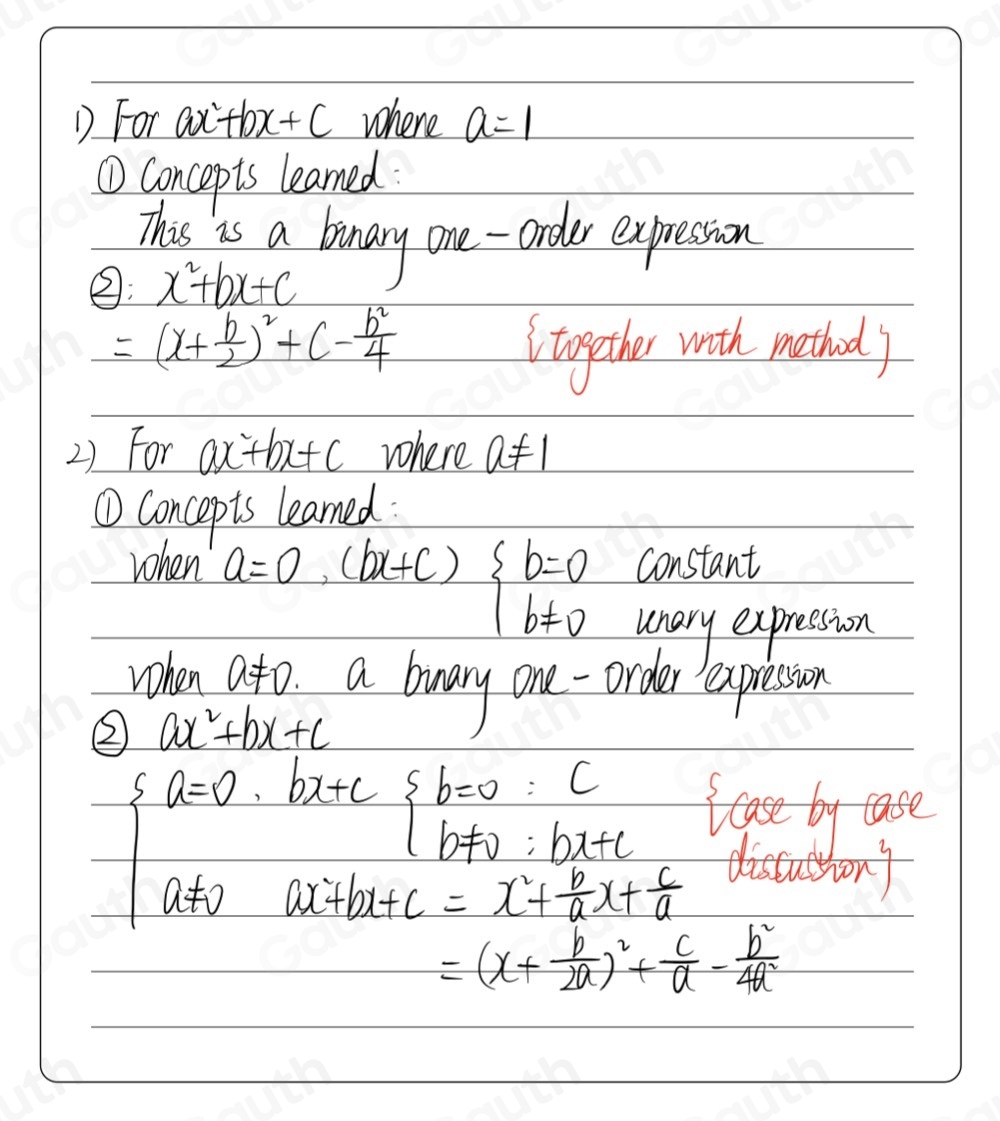 1) For ax²+bx+c where a=1
① Concepts learned:
This is a binary one-order expression
②: x²+bx+c
= (x+b/2)²+c-b²/4 {together with method}
2) For ax²+bx+c where a≠1
① Concepts learned:
when a=0, (bx+c) { b=0 constant
b≠0 unary expression
when a≠0. a binary one-order expression
② ax²+bx+c
{ a=0, bx+c { b=0 : c
b≠0 : bx+c
{case by case
discussion}
a≠0 ax²+bx+c = x²+b/a x+c/a
= (x+b/2a)²+c/a-b²/4a²
Gauth